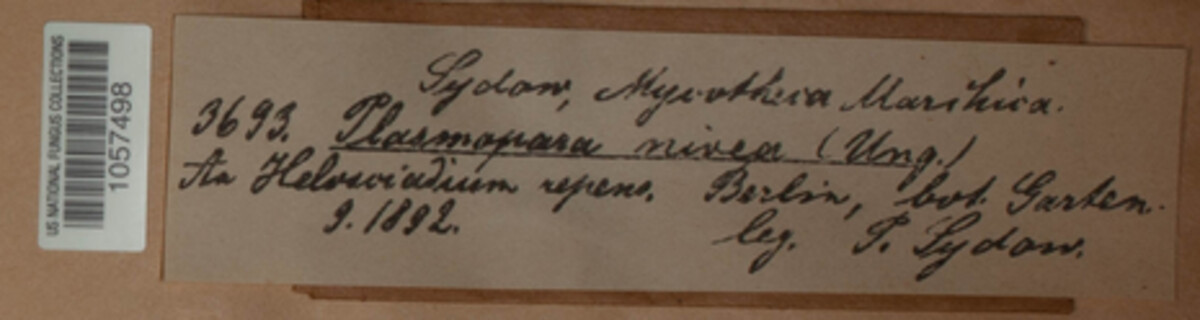 US NATIONAL FUNGUS COLLECTIONS
1057498
Sydow, Mycotheca Marchica.
3693. Plasmopara nivea (Ung.)
An Helosciadium repens. Berlin, bot. Garten.
9. 1892. leg. P. Sydow.